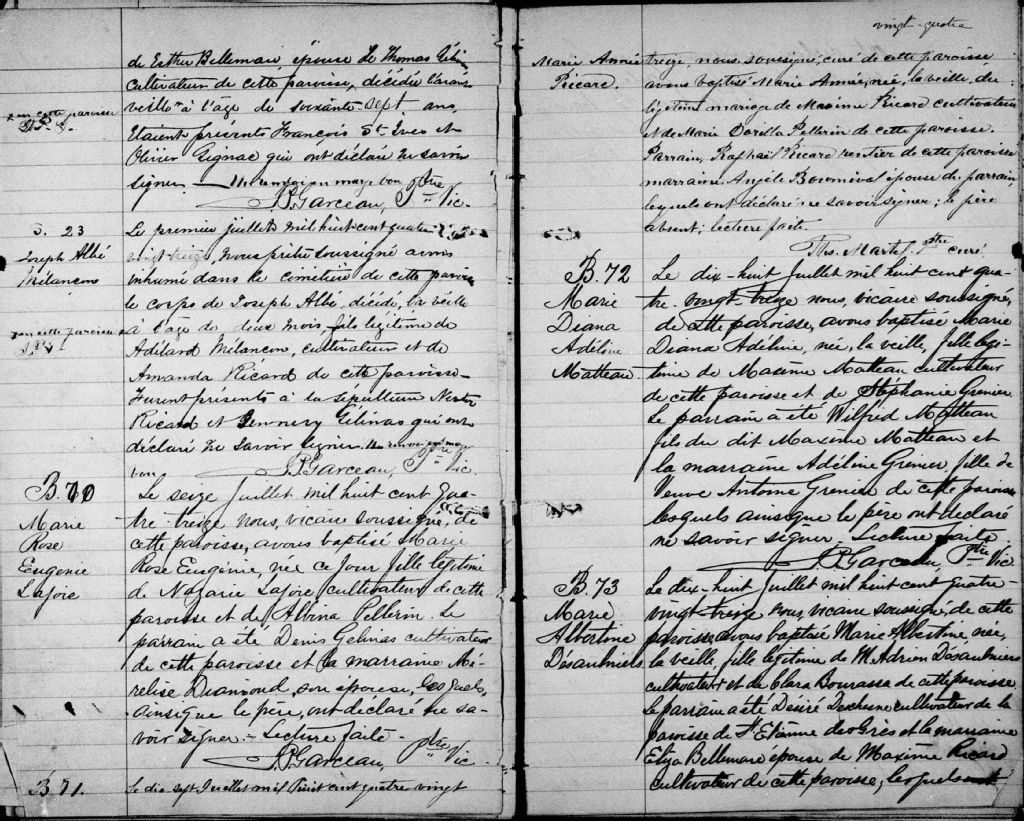 de Esther Bellemare épouse de Thomas
cultivateur de cette paroisse, décédée l'avant
veille à l'age de soixante-sept ans
Etaient présents François St. Yves et
Olivier Gignac qui ont déclaré ne savoir
signer — Un renvoi en marge bon
J.P. Garceau, Ptre Vic.
par cette paroisse
J.P.G.
S. 23
Joseph Albé
Mélançons
Le premier juillet mil huit cent quatre
vingt-treize, nous prêtre soussigné avons
inhumé dans le cimetière de cette paroisse
le corps de Joseph Albé, décédé, la veille
par cette paroisse
à l'age de deux mois, fils légitime de
Adélard Mélancon, cultivateur et de
Amanda Ricard de cette paroisse
Furent présents à la sépulture Nestor
Ricard et Gélinas qui ont
déclaré ne savoir signer. Un renvoi en marge
bon. J.P. Garceau, Ptre Vic.
B. 70
Marie
Rose
Eugenie
Lajoie
Le seize Juillet mil huit cent qua-
tre-treize nous, vicaire soussigné, de
cette paroisse, avons baptisé Marie
Rose Eugénie, née ce jour fille légitime
de Nazarie Lajoie cultivateur de cette
paroisse et de Albina Pellerin. Le
parrain a été Denis Gelinas cultivateur
de cette paroisse et la marraine Mé-
relise Diamond, son épouse, lesquels,
ainsi que le père, ont déclaré ne sa-
voir signer. — Lecture faite.
J.P. Garceau, Ptre Vic.
B. 71.
Le dix sept Juillet mil huit cent quatre vingt
vingt-quatre
Marie Annie
Ricard.
treize, nous, soussigné, curé de cette paroisse
avons baptisé Marie Annie, née, la veille, du
légitime mariage de Maxime Ricard cultivateur
et de Marie Dorilla Pellerin de cette paroisse.
Parrain, Raphaël Ricard rentier de cette paroisse
marraine Angèle Bournival épouse du parrain,
lesquels ont déclaré ne savoir signer; le père
absent; lecture faite.
Ths. Martel Ptre curé
B. 72
Marie
Diana
Adéline
Matteau.
Le dix-huit Juillet mil huit cent qua-
tre-vingt-treize nous, vicaire soussigné,
de cette paroisse, avons baptisé Marie
Diana Adéline, née, la veille, fille légi-
time de Maxime Matteau cultivateur
de cette paroisse et de Stéphanie Grenier
Le parrain a été Wilfrid Matteau
fils du dit Maxime Matteau et
la marraine Adéline Grenier, fille de
Veuve Antoine Grenier de cette paroisse
lesquels ainsi que le père ont déclaré
ne savoir signer. Lecture faite
J.P. Garceau, Ptre Vic
B. 73
Marie
Albertine
Désaulniers
Le dix-huit Juillet mil huit cent quatre-
vingt-treize nous, vicaire soussigné, de cette
paroisse avons baptisé Marie Albertine née,
la veille, fille légitime de M. Adrien Désaulniers
cultivateur et de Clara Bourassa de cette paroisse
Le parrain a été Désiré Duchesne cultivateur de la
paroisse de St Etienne des Grès et la marraine
Eliza Bellemare épouse de Maxime Ricard
cultivateur de cette paroisse, lesquels ont